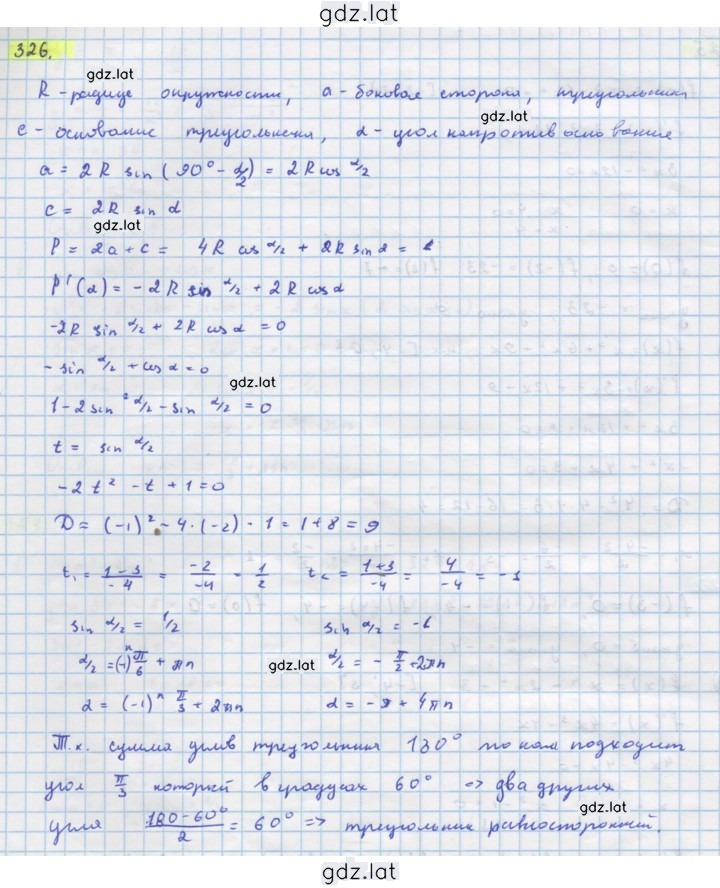 gdz.lat
326.
gdz.lat
R - радиус окружности, a - боковая сторона, треугольника
gdz.lat
c - основание треугольника, α - угол напротив основание
a = 2R sin (90° - α/2) = 2R cos α/2
c = 2R sin α
gdz.lat
P = 2a + c = 4R cos α/2 + 2R sin α =
P'(α) = -2R sin α/2 + 2R cos α
-2R sin α/2 + 2R cos α = 0
- sin α/2 + cos α = 0
gdz.lat
1 - 2 sin² α/2 - sin α/2 = 0
t = sin α/2
-2t² - t + 1 = 0
D = (-1)² - 4·(-2)·1 = 1 + 8 = 9
t₁ = (1-3)/(-4) = (-2)/(-4) = 1/2 t₂ = (1+3)/(-4) = 4/(-4) = -1
sin α/2 = 1/2 sin α/2 = -1
α/2 = (-1)ⁿ π/6 + πn gdz.lat α/2 = - π/2 + 2πn
α = (-1)ⁿ π/3 + 2πn α = -π + 4πn
Т.к. сумма углов треугольника 180° то нам подходит
угол π/3 который в градусах 60° => два других
gdz.lat
угла (180-60°)/2 = 60° => треугольник равносторонний.
gdz.lat